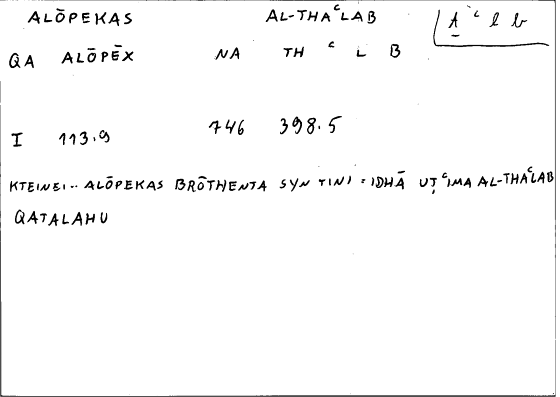 ALŌPEKAS AL-THAᶜLAB ṯ ᶜ l b
QA ALŌPĒX NA TH ᶜ L B
I 113.9 746 398.5
KTEINEI.. ALŌPEKAS BRŌTHENTA SYN TINI = IDHĀ UṬᶜIMA AL-THAᶜLAB
QATALAHU